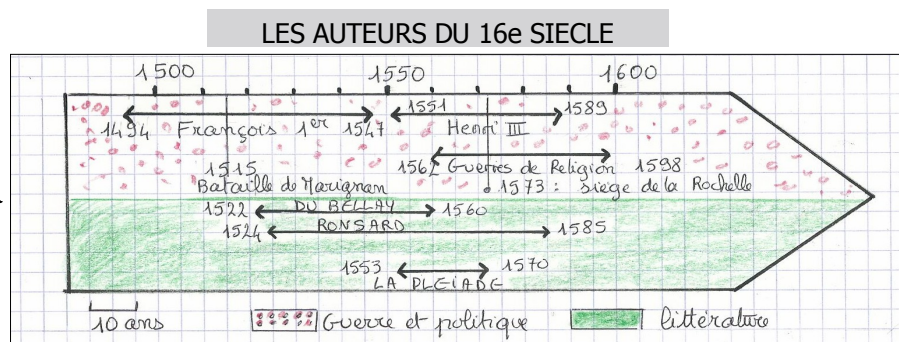 LES AUTEURS DU 16e SIECLE
1500 1550 1600
1551 1589
1494 François 1er 1547 Henri III
1562 Guerres de Religion 1598
1515
Bataille de Marignan 1573 : siège de la Rochelle
1522 DU BELLAY 1560
1524 RONSARD 1585
1553 1570
LA PLEIADE
10 ans Guerre et politique littérature